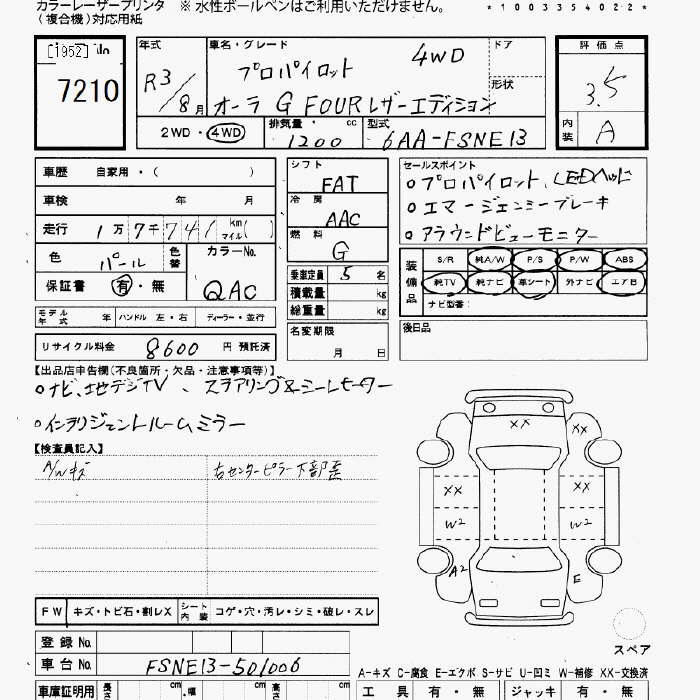 カラーレーザープリンタ ※ 水性ボールペンはご利用いただけません。 *100335402 2*
(複合機)対応用紙
[1952] No
7210
年式 R3/8月
車名・グレード プロパイロット 4WD
オーラ G FOURレザーエディション
ドア
形状
2WD・4WD 排気量・cc 1200 型式 6AA-FSNE13
評価点 3.5
内装 A
車歴 自家用・( )
車検 年 月
走行 1万7千741 km マイル( )
色 パール 色番 カラーNo. QAC
保証書 有・無
モデル年式 年 ハンドル 左・右 ディーラー・並行
リサイクル料金 8600 円 預託済
シフト FAT
冷房 AAC
燃料 G
乗車定員 5 名
積載量 kg
総重量 kg
名変期限 月 日
セールスポイント
oプロパイロット、LEDヘッド
oエマージェンシーブレーキ
oアラウンドビューモニター
装備品 S/R 純A/W P/S P/W ABS
純TV 純ナビ 革シート 外ナビ エアB
ナビ型番:
後日品
【出品店申告欄(不良箇所・欠品・注意事項等)】
oナビ、地デジTV、ステアリング&シートヒーター
oインテリジェントルームミラー
【検査員記入】
A/Wキズ 右センターピラー下部歪
XX XX
XX XX
W2 W2
A2 E
スペア
FW キズ・トビ石・割レX シート内装 コゲ・穴・汚レ・シミ・破レ・スレ
登録 No.
車台 No. FSNE13-501006
A-キズ C-腐食 E-エクボ S-サビ U-凹ミ W-補修 XX-交換済
車庫証明用 長さ cm ・幅 cm 高さ cm
工具 有・無 ジャッキ 有・無